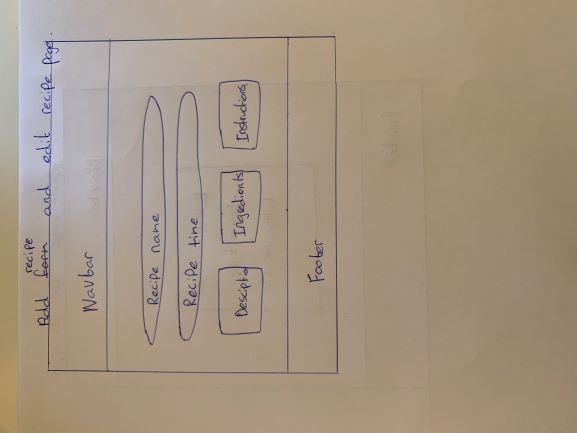 recipe
Add form and edit recipe page.
Navbar
Recipe name
Recipe time
Desciptio Ingredients Instructions
Footer